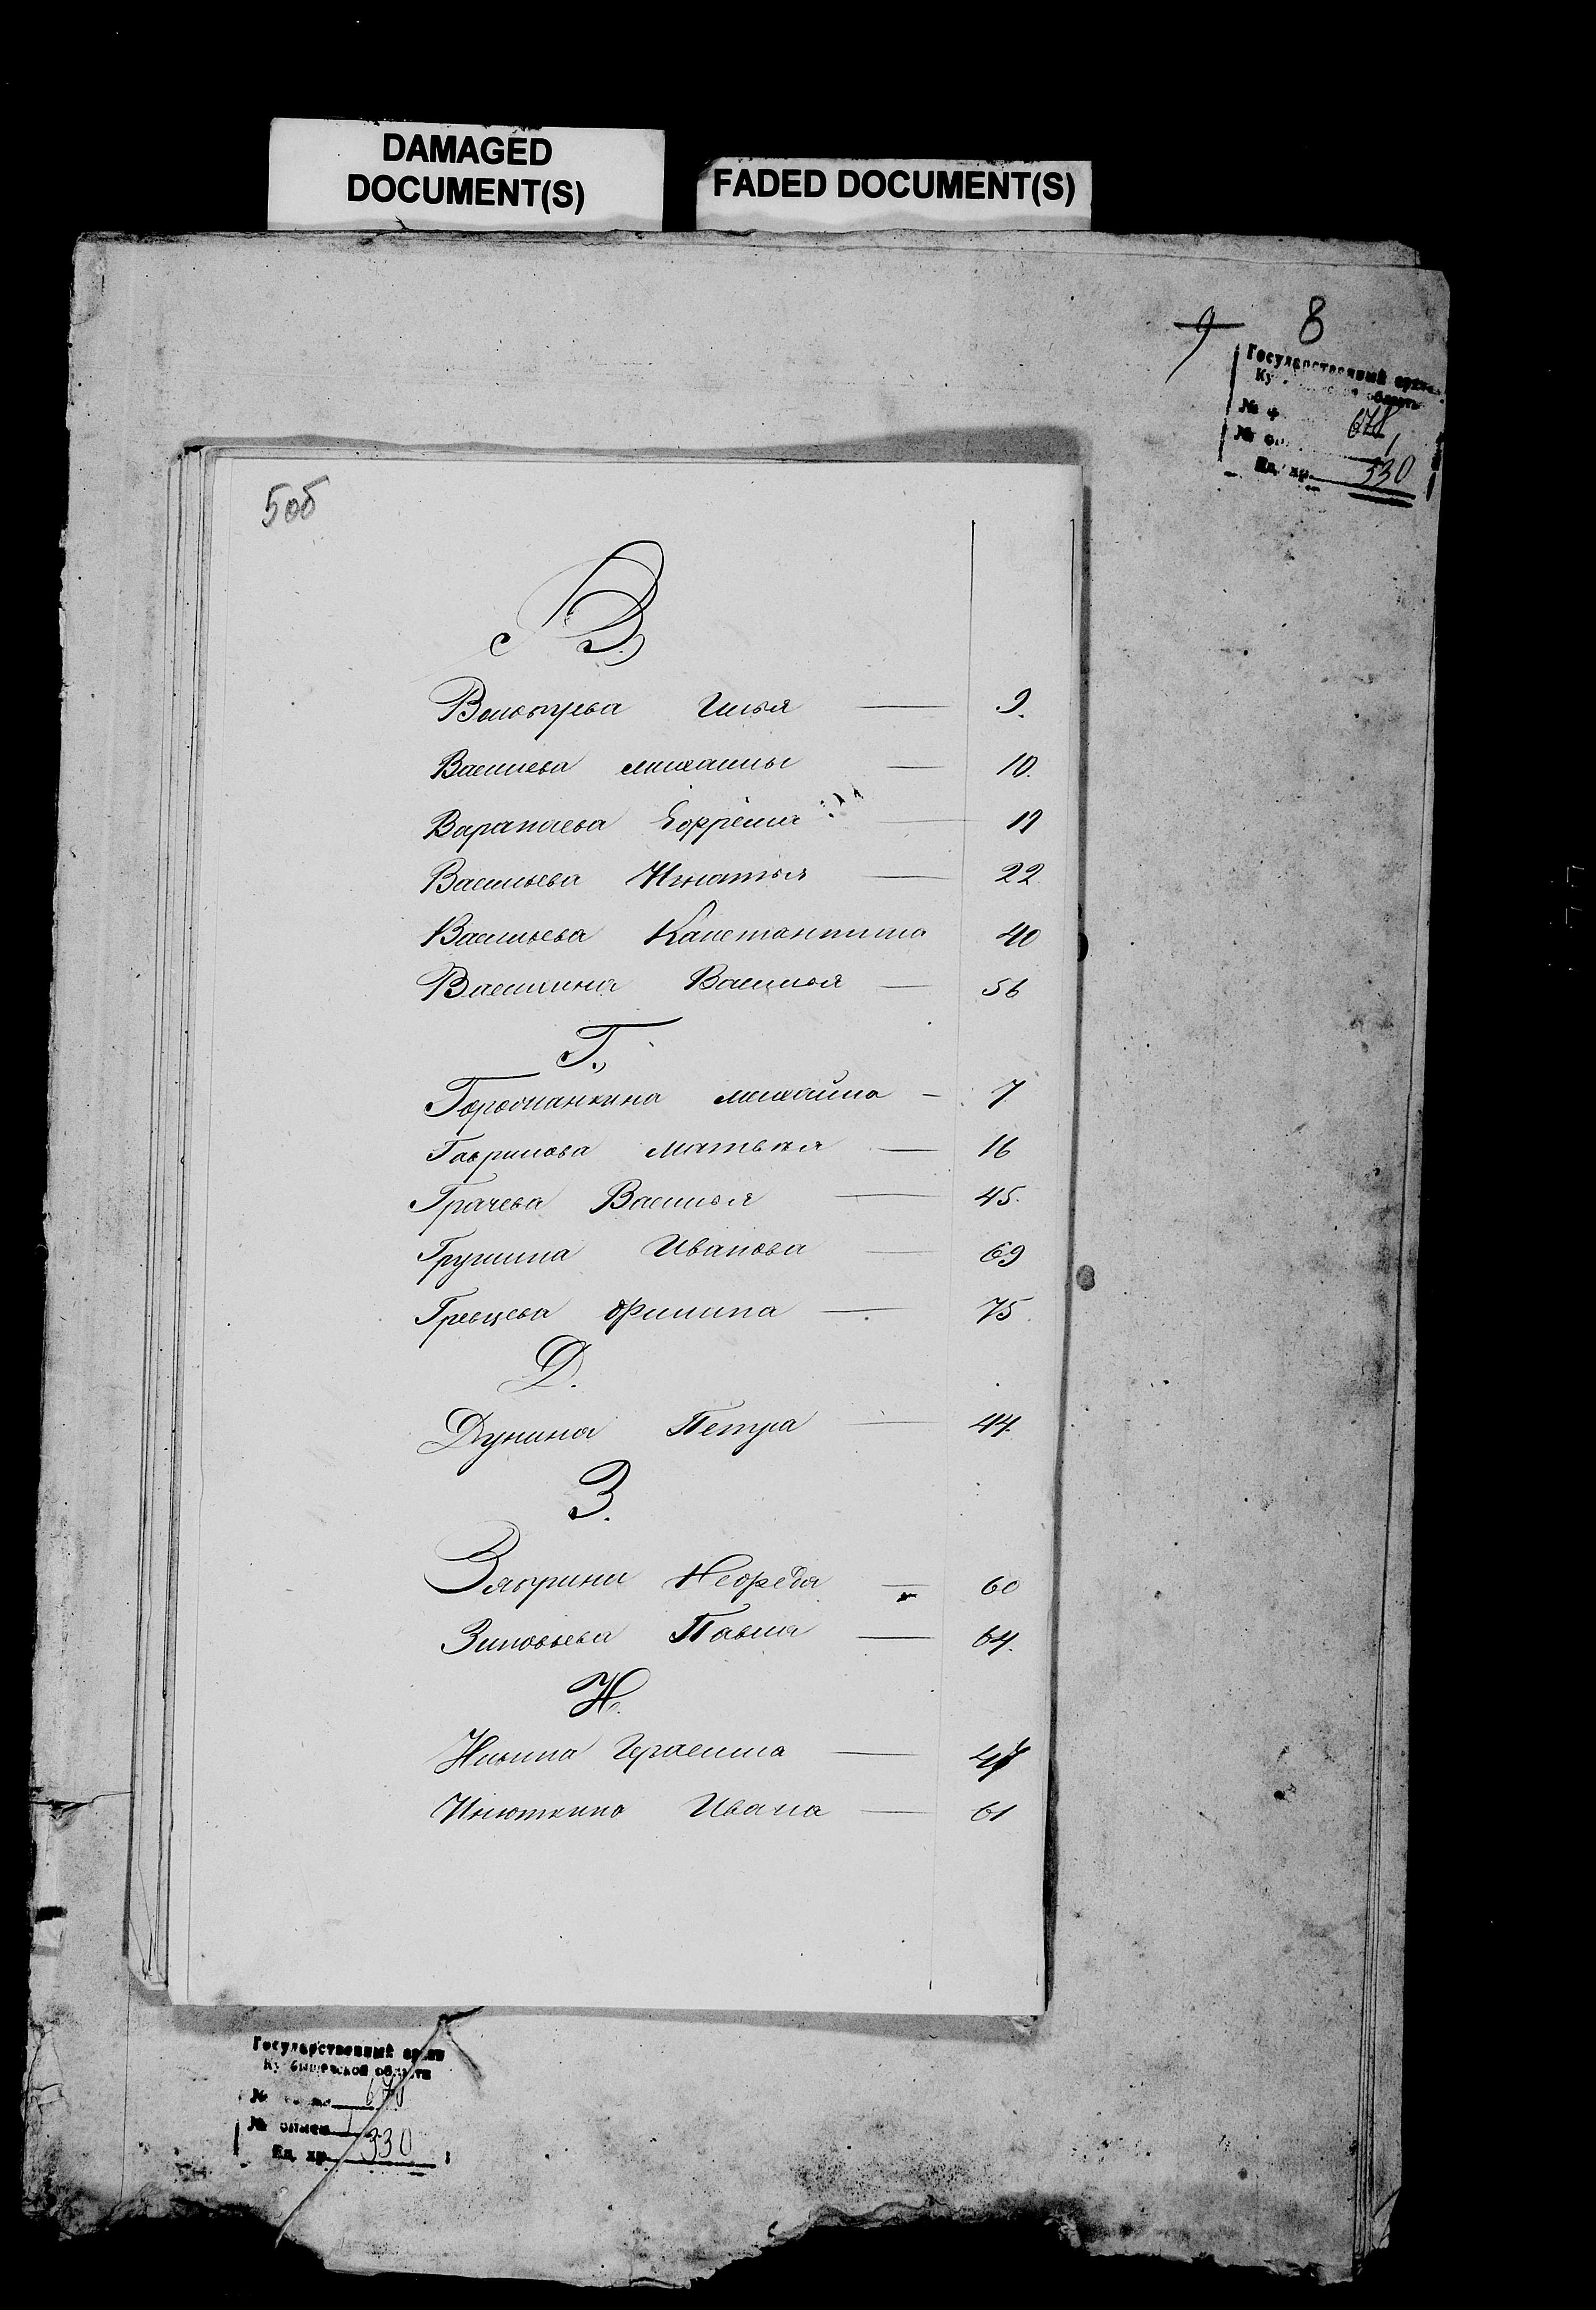 DAMAGED
DOCUMENT(S)
FADED DOCUMENT(S)
9 8
Государственный архив
Ку области
№ ф. 678
№ оп. 1
Ед. хр. 330
5об
В.
Илья 9.
Васильева михаилы 10.
Варапаева Ефрема 19
Васильева Игнатья 22
Васильева Канстантина 40
Васильева Василья 56
Г.
михайла 7
Гаврилова матвея 16
Грачева Василья 45.
Грушина Иванова 69
Гревцева Филипа 75.
Д.
Дунина Петра 44.
З.
60
Зиновьева Павла 64.
И.
Ильина Герасима 47
Инюткина Ивана 61
Государственный архив
Куйбышевской области
№ фонда 678
№ описи 1
Ед. хр. 330